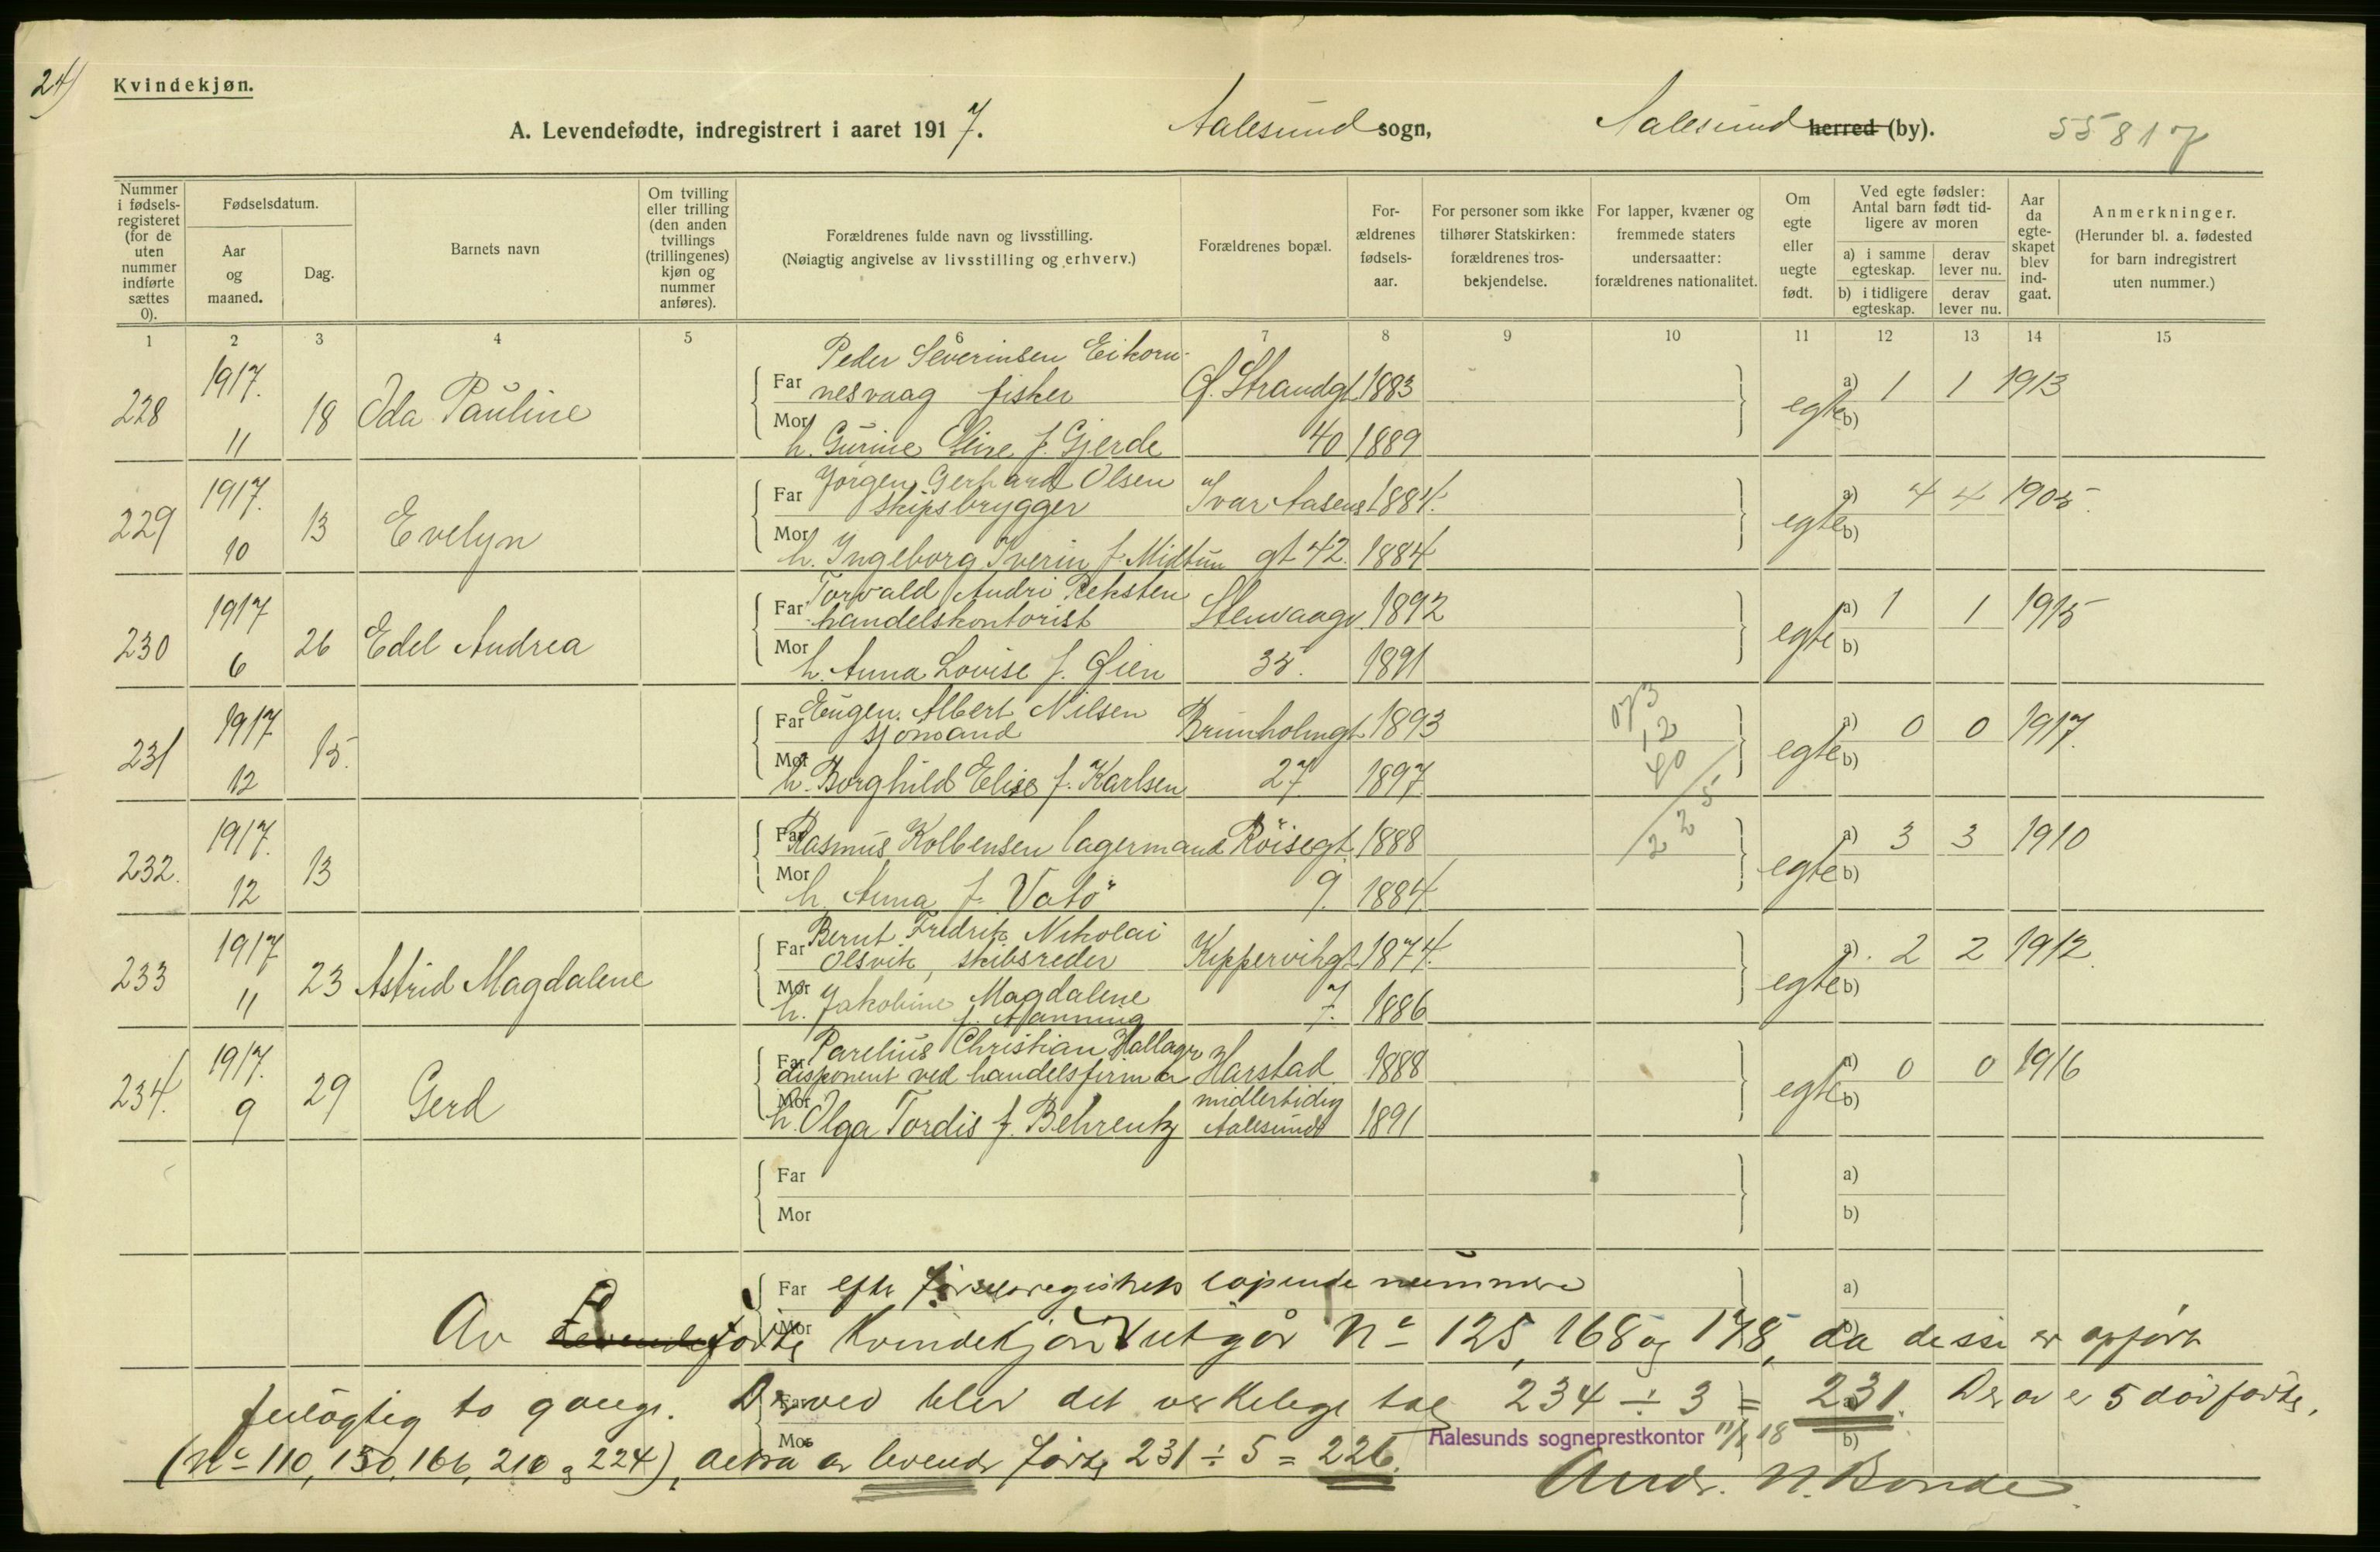 24)
Kvindekjøn.
A. Levendefødte, indregistrert i aaret 1917. Aalesund sogn, Aalesund herred (by). 55817
Nummer i fødsels-registeret (for de uten nummer indførte sættes 0).
Fødselsdatum.
Aar og maaned.
Dag.
Barnets navn
Om tvilling eller trilling (den anden tvillings (trillingenes) kjøn og nummer anføres).
Forældrenes fulde navn og livsstilling.
(Nøiagtig angivelse av livsstilling og erhverv.)
Forældrenes bopæl.
For-ældrenes fødsels-aar.
For personer som ikke tilhører Statskirken: forældrenes tros-bekjendelse.
For lapper, kvæner og fremmede staters undersaatter: forældrenes nationalitet.
Om egte eller uegte født.
Ved egte fødsler: Antal barn født tid-ligere av moren
a) i samme egteskap. derav lever nu.
b) i tidligere egteskap. derav lever nu.
Aar da egte-skapet blev ind-gaat.
Anmerkninger.
(Herunder bl. a. fødested for barn indregistrert uten nummer.)
1 2 3 4 5 6 7 8 9 10 11 12 13 14 15
Peder Severinsen Eikorn-
228 1917. 11 18 Ida Pauline Far nesvaag fisker Ø. Strandgt. 1883 egte a) 1 1 1913
Mor h. Gurine Eline f. Gjerde 40 1889 b)
229 1917. 10 13 Evelyn Far Jørgen Gerhard Olsen
skipsbrygger Ivar Aasens 1884. egte a) 4 4 1905.
Mor h. Ingeborg Iverin f. Midtun gt 42. 1884 b)
230 1917 6 26 Edel Andrea Far Torvald Andri Reksten
handelskontorist Stenvaagv. 1892 egte a) 1 1 1915
Mor h. Anna Lovise f. Øien 35. 1891 b)
231 1917 12 15. Far Eugen Albert Nilsen
sjømand Brunholmgt 1893 egte a) 0 0 1917.
Mor h. Borghild Elise f. Karlsen 27 1897 b)
232. 1917. 12 13 Far Rasmus Kolbensen lagermand Röisegt. 1888 egte a) 3 3 1910
Mor h. Anna f. Vatö 9. 1884. b)
233 1917 11 23 Astrid Magdalene Far Bernt Fredrik Nikolai
Olsvik, skibsreder Kippervikgt. 1874. egte a) 2 2 1912.
Mor h. Jakobine Magdalene
f. Manning 7. 1886 b)
234. 1917. 9 29 Gerd Far Parelius Christian Hallager
disponent ved handelsfirma Harstad 1888 egte a) 0 0 1916
midlertidig
Mor h. Olga Tordis f. Behrentz Aalesund 1891 b)
Far a)
Mor b)
Far efter fødselsregistrets løpende nummere a)
Av fødte Kvindekjön utgår No 125, 168 og 178, da disse er opført
feilagtig to gange. Derved blir det virkelige tal 234 ÷ 3 = 231. Derav er 5 dødfødte,
Aalesunds sogneprestkontor 11/1 18
(No 110, 150, 166, 210 og 224), altså er levende fødte 231 ÷ 5 = 226.
Andr. N. Bonde